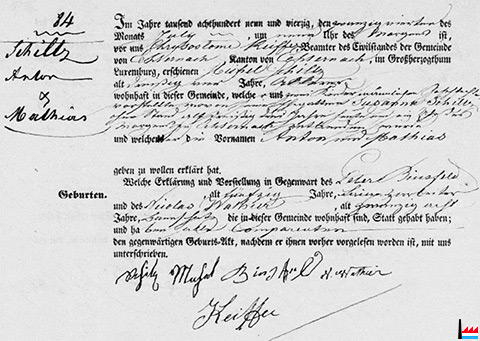 84
Schiltz
Anton
&
Mathias
Im Jahre tausend achthundert neun und vierzig, den zwanzig vierten des
Monats July, um neun Uhr des Morgens ist,
vor uns Chrysostome Keiffer Beamter des Civilstandes der Gemeinde
von Echternach, Kanton von Echternach, im Großherzogthum
Luxemburg, erschienen Michel Schiltz
alt dreißig vier Jahre,
wohnhaft in dieser Gemeinde, welcher uns zwei Kinder männlichen Geschlechts
Susanna Schiltz
ohne Stand alt dreißig drei Jahre
Echternach
und welchen die Vornamen Anton und Mathias
geben zu wollen erklärt hat.
Welche Erklärung und Vorstellung in Gegenwart des Peter Binsfeld
Geburten.
, alt Jahre,
und des Nicolas Wathier, alt zwanzig acht
Jahre, die in dieser Gemeinde wohnhaft sind, Statt gehabt haben;
und haben alle Comparenten
den gegenwärtigen Geburts-Akt, nachdem er ihnen vorher vorgelesen worden ist, mit uns
unterschrieben.
Schiltz Michel Binsfeld N. Wathier
Keiffer